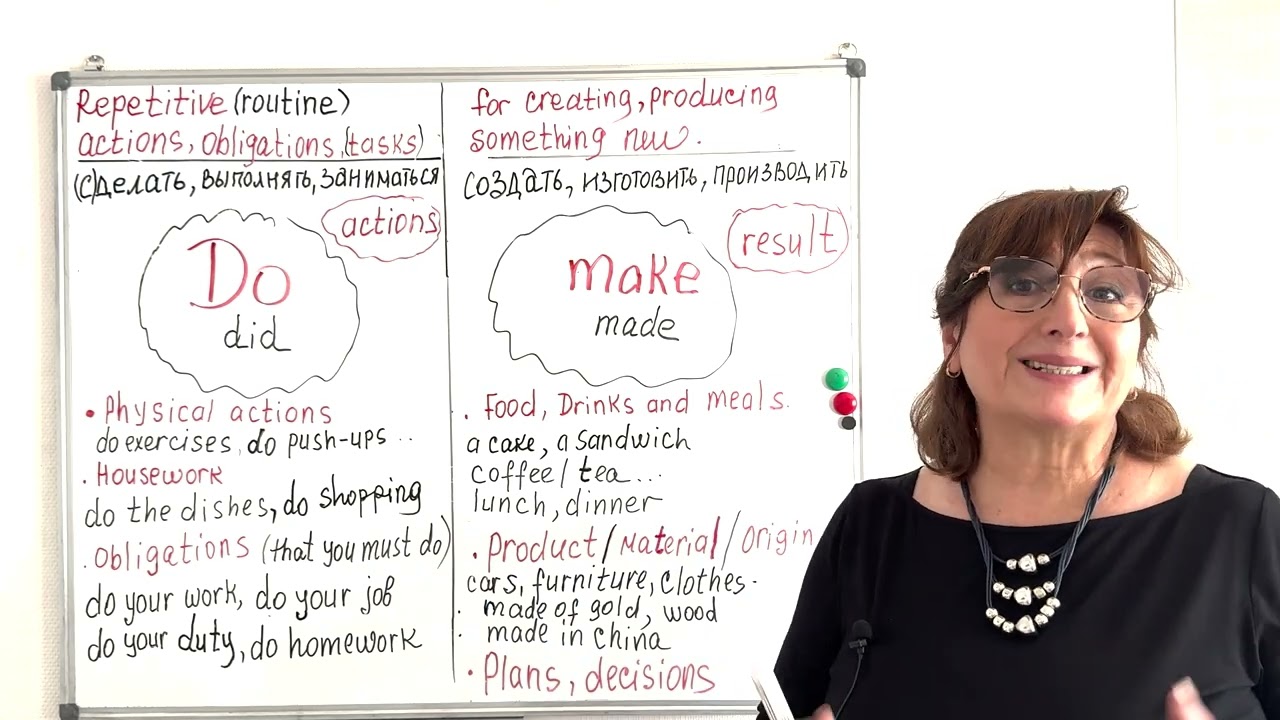 Repetitive (routine)
actions, obligations, (tasks)
(с)делать, выполнять, заниматься
actions
Do
did
• Physical actions
do exercises, do push-ups ..
. Housework
do the dishes, do shopping
. obligations (that you must do)
do your work, do your job
do your duty, do homework
for creating, producing
something new.
создать, изготовить, производить
result
make
made
. Food, Drinks and meals.
a cake, a sandwich
coffee/ tea...
lunch, dinner
. Product/Material/Origin
cars, furniture, clothes.
. made of gold, wood
. made in china
. Plans, decisions